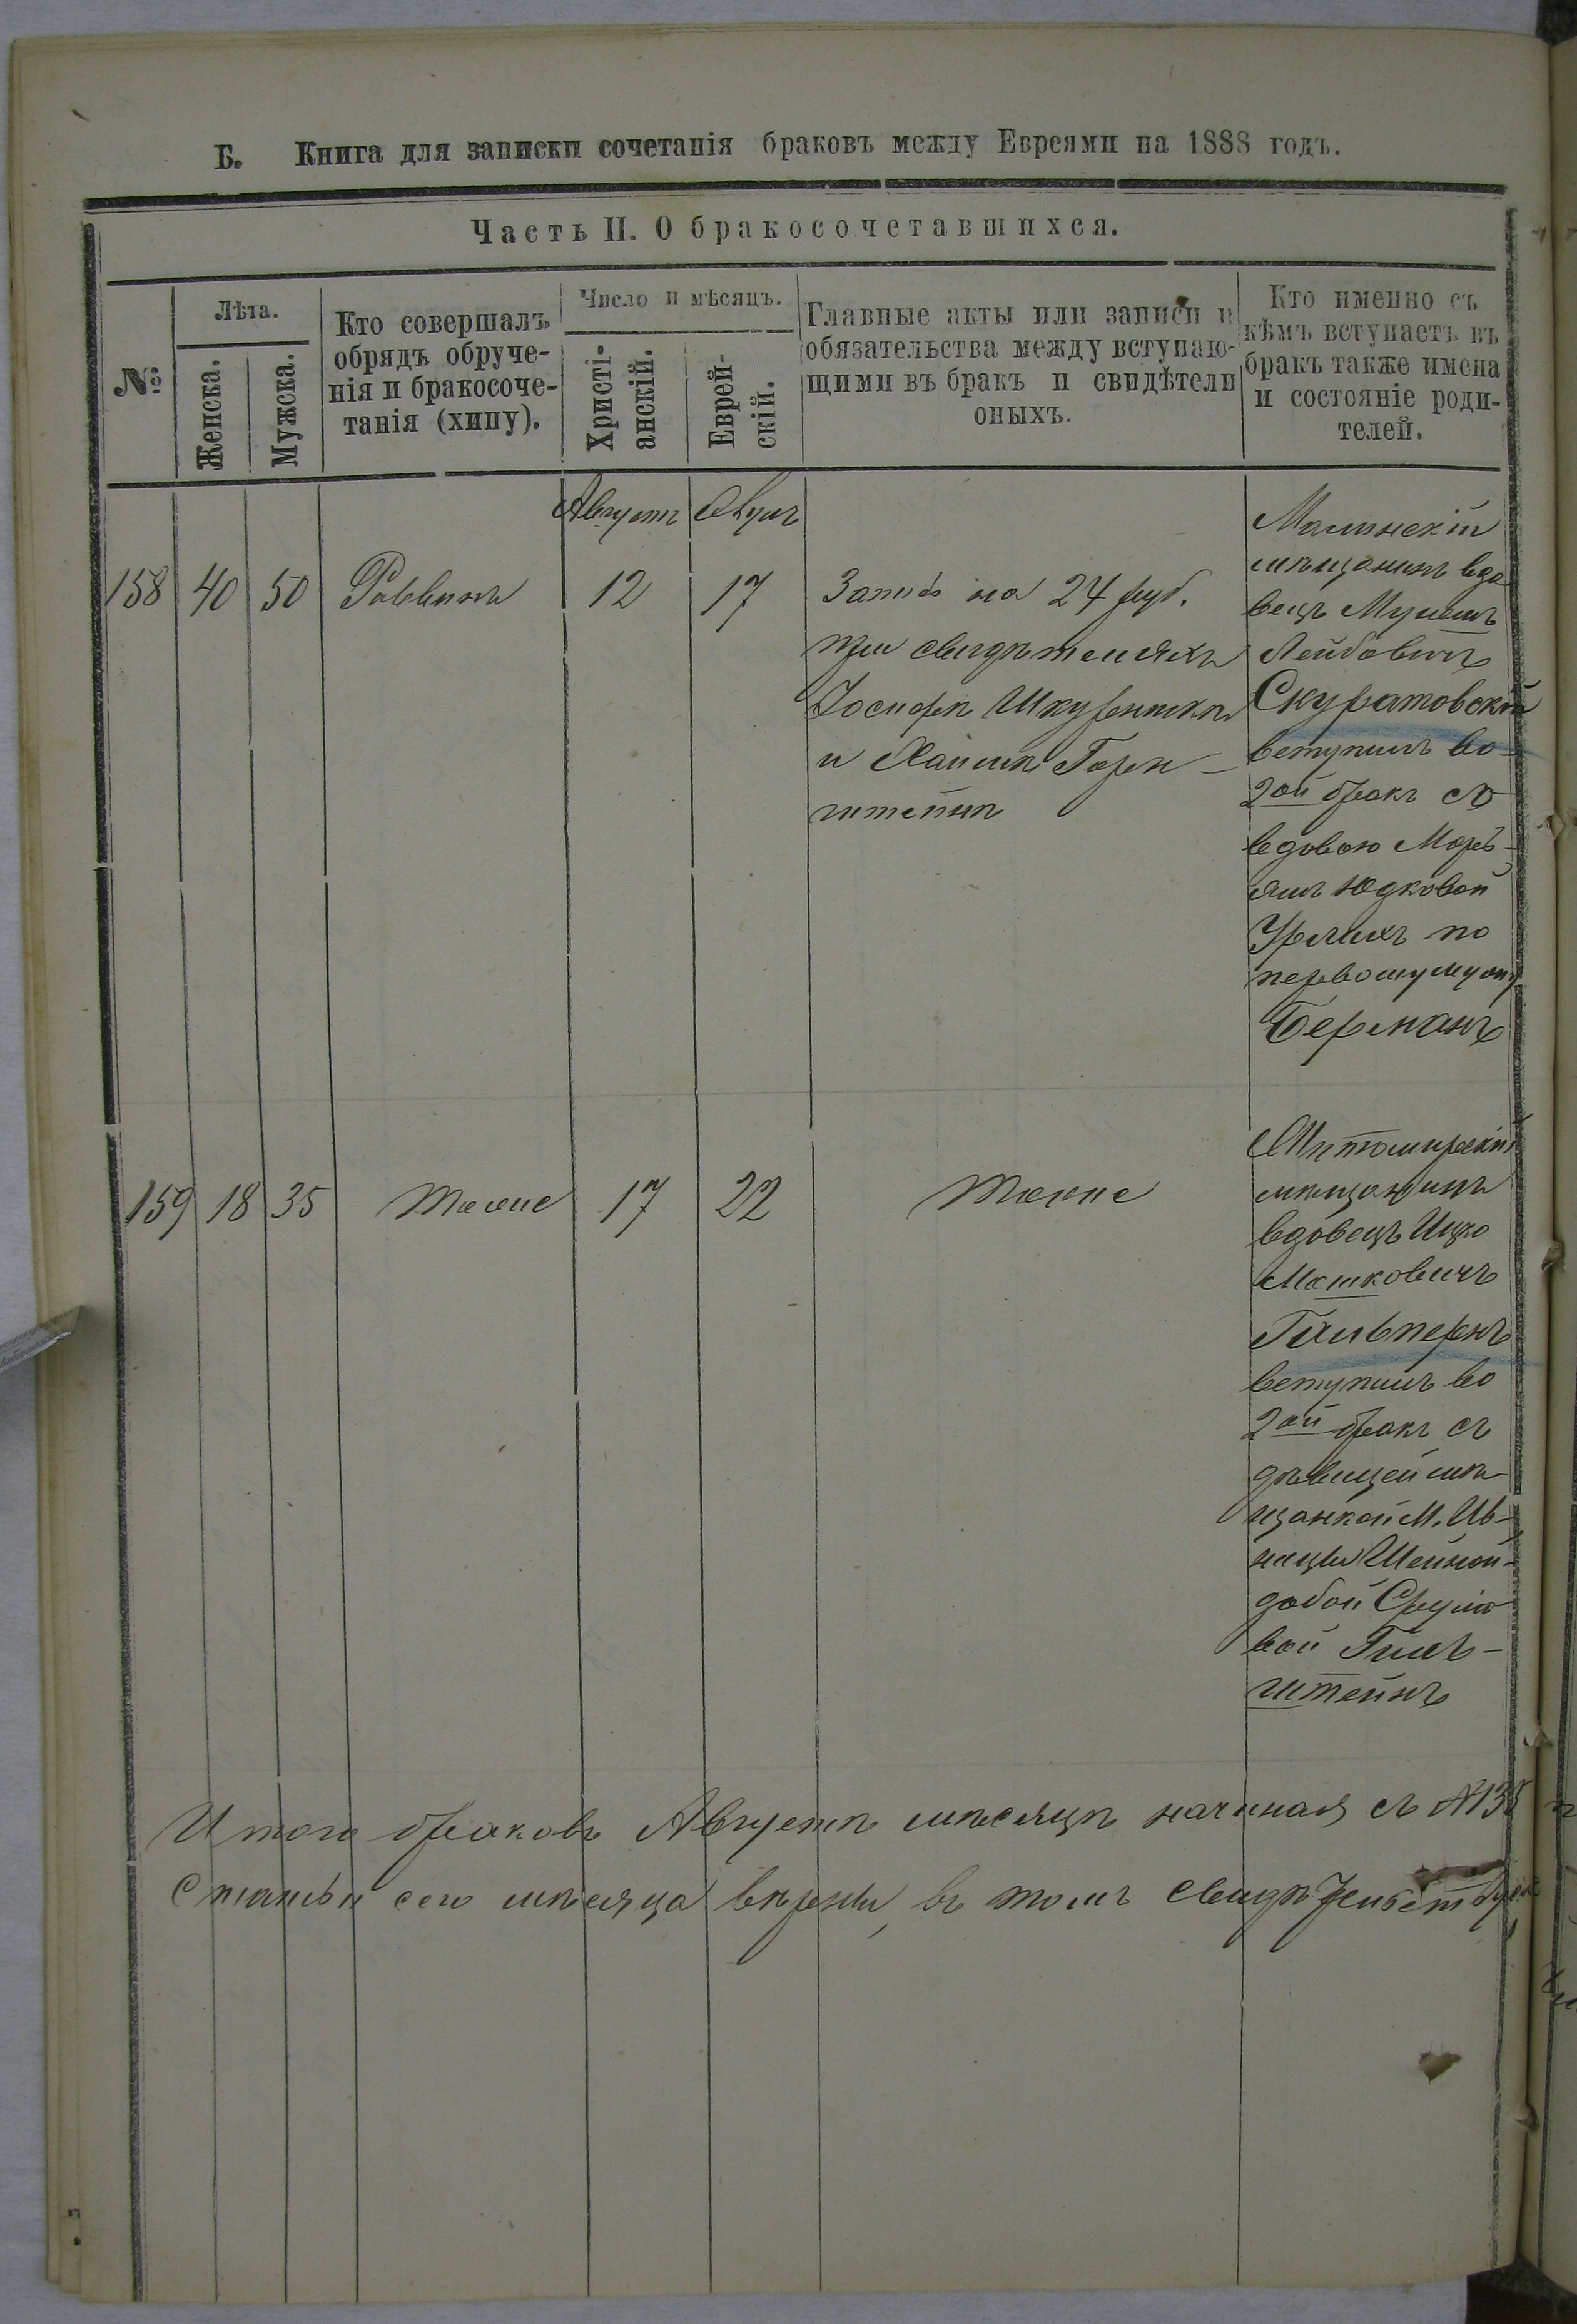 Б. Книга для записки сочетанія браковъ между Евреями на 1888 годъ.
Часть II. О бракосочетавшихся.
№
Лѣта.
Женска.
Мужска.
Кто совершалъ
обрядъ обруче-
нія и бракосоче-
танія (хипу).
Число и мѣсяцъ.
Христі-
анскій.
Еврей-
скій.
Главные акты или записи и
обязательства между вступаю-
щими въ бракъ и свидѣтели
оныхъ.
Кто именно съ
кѣмъ вступаетъ въ
бракъ также имена
и состояніе роди-
телей.
Августъ
158 40 50 Раввинъ 12 17
Запись на 24 руб.
при свидѣтеляхъ
Іосифѣ Шкурникѣ
и Хаимѣ Горен-
штейнѣ
Малинскій
мѣщанинъ вдо
вецъ
Лейбовичъ
Скуратовскій
вступилъ во
2ой бракъ съ
вдовою Марь-
ямъ Юдковой
по
первому мужу
Берманъ
159 18 35 Тоже 17 22 Тоже
Житомирскій
мѣщанинъ
вдовецъ Ицко
Мошковичъ
Гальпернъ
вступилъ во
2ой бракъ съ
дѣвицей мѣ-
щанкой М. Ив-
ницы Шейной-
добой Срулио
вой Гиль-
штейнъ
Итого браковъ Августѣ мѣсяцѣ начиная съ №135
Статьи сего мѣсяца вѣрны, въ томъ свидѣтельствуемъ